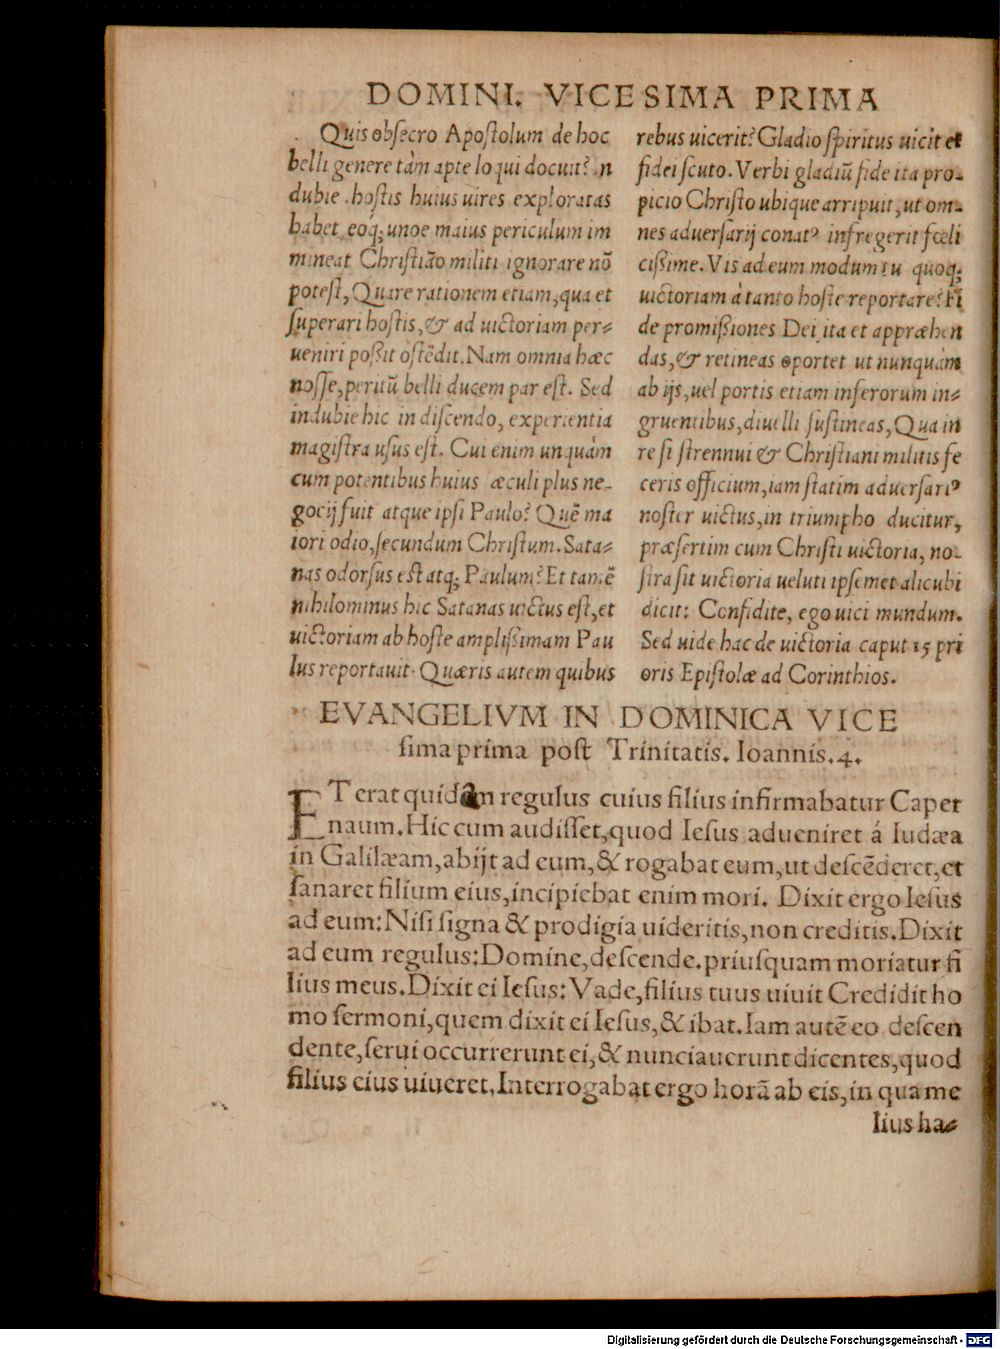 DOMINI. VICESIMA PRIMA
Quis obſecro Apoſtolum de hoc
belli genere tàm apte loqui docuit? n
dubie hoſtis huius uires exploratas
habet eoq; unoe maius periculum im
mineat Chriſtiāo militi ignorare nō
poteſt, Quare rationem etiam, qua et
ſuperari hoſtis, & ad uictoriam per⸗
ueniri poßit oſtēdit. Nam omnia hæc
noſſe, peritū belli ducem par eſt. Sed
indubie hic in diſcendo, experientia
magiſtra uſus eſt. Cui enim unquàm
cum potentibus huius æculi plus ne-
gocij fuit atque ipſi Paulo? Quē ma
iori odio, ſecundum Chriſtum. Sata⸗
nas odorſus eſt atq; Paulum? Et tamē
nihilominus hic Satanas uictus eſt, et
uictoriam ab hoſte amplißimam Pau
lus reportauit. Quæris autem quibus
rebus uicerit? Gladio ſpiritus uicit et
fidei ſcuto. Verbi gladiū fide ita pro-
picio Chriſto ubique arripuit, ut om-
nes aduerſarij conatꝰ infregerit fœli
cißime. Vis ad eum modum tu quoq;
uictoriam à tanto hoſte reportare? Fi
de promißiones Dei ita et appræhen
das, & retineas oportet ut nunquàm
ab ijs, uel portis etiam inferorum in⸗
gruentibus, diuelli ſuſtineas, Qua in
re ſi ſtrennui & Chriſtiani militis fe
ceris officium, iam ſtatim aduerſariꝰ
noſter uictus, in triumpho ducitur,
præſertim cum Chriſti uictoria, no-
ſtra ſit uictoria ueluti ipſemet alicubi
dicit: Confidite, ego uici mundum.
Sed uide hac de uictoria caput 15 pri
oris Epiſtolæ ad Corinthios.
EVANGELIVM IN DOMINICA VICE
ſima prima poſt Trinitatis. Ioannis. 4.
ET erat quidam regulus cuius filius infirmabatur Caper
naum. Hic cum audiſſet, quod Ieſus adueniret á Iudæa
in Galilæam, abijt ad eum, & rogabat eum, ut deſcēderet, et
ſanaret filium eius, incipiebat enim mori. Dixit ergo Ieſus
ad eum: Niſi ſigna & prodigia uideritis, non creditis. Dixit
ad eum regulus: Domine, deſcende. priuſquam moriatur fi
lius meus. Dixit ei Ieſus: Vade, filius tuus uiuit Credidit ho
mo ſermoni, quem dixit ei Ieſus, & ibat. Iam autē eo deſcen
dente, ſerui occurrerunt ei, & nunciauerunt dicentes, quod
filius eius uiueret, Interrogabat ergo horā ab eis, in qua me
lius ha⸗
Digitalisierung gefördert durch die Deutsche Forschungsgemeinschaft - DFG